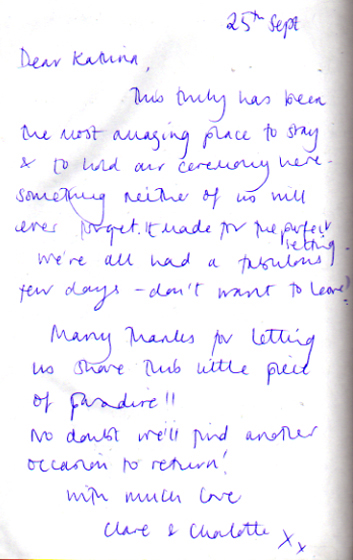 25th Sept
Dear Katrina,
This truly has been
the most amazing place to stay
& to hold our ceremony here -
something neither of us will
ever forget. It made for the perfect
setting.
We're all had a fabulous
few days - don't want to leave!
Many thanks for letting
us share this little piece
of paradise!!
No doubt we'll find another
occasion to return!
With much love
Clare & Charlotte xx